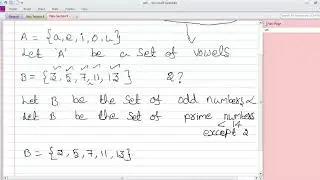 A = {a, e, i, o, u}
Let 'A' be a set of vowels
B = {3, 5, 7, 11, 13} 2?
Let B be the set of odd numbers
Let B be the set of prime numbers
< 14
except 2
B = {3, 5, 7, 11, 13}